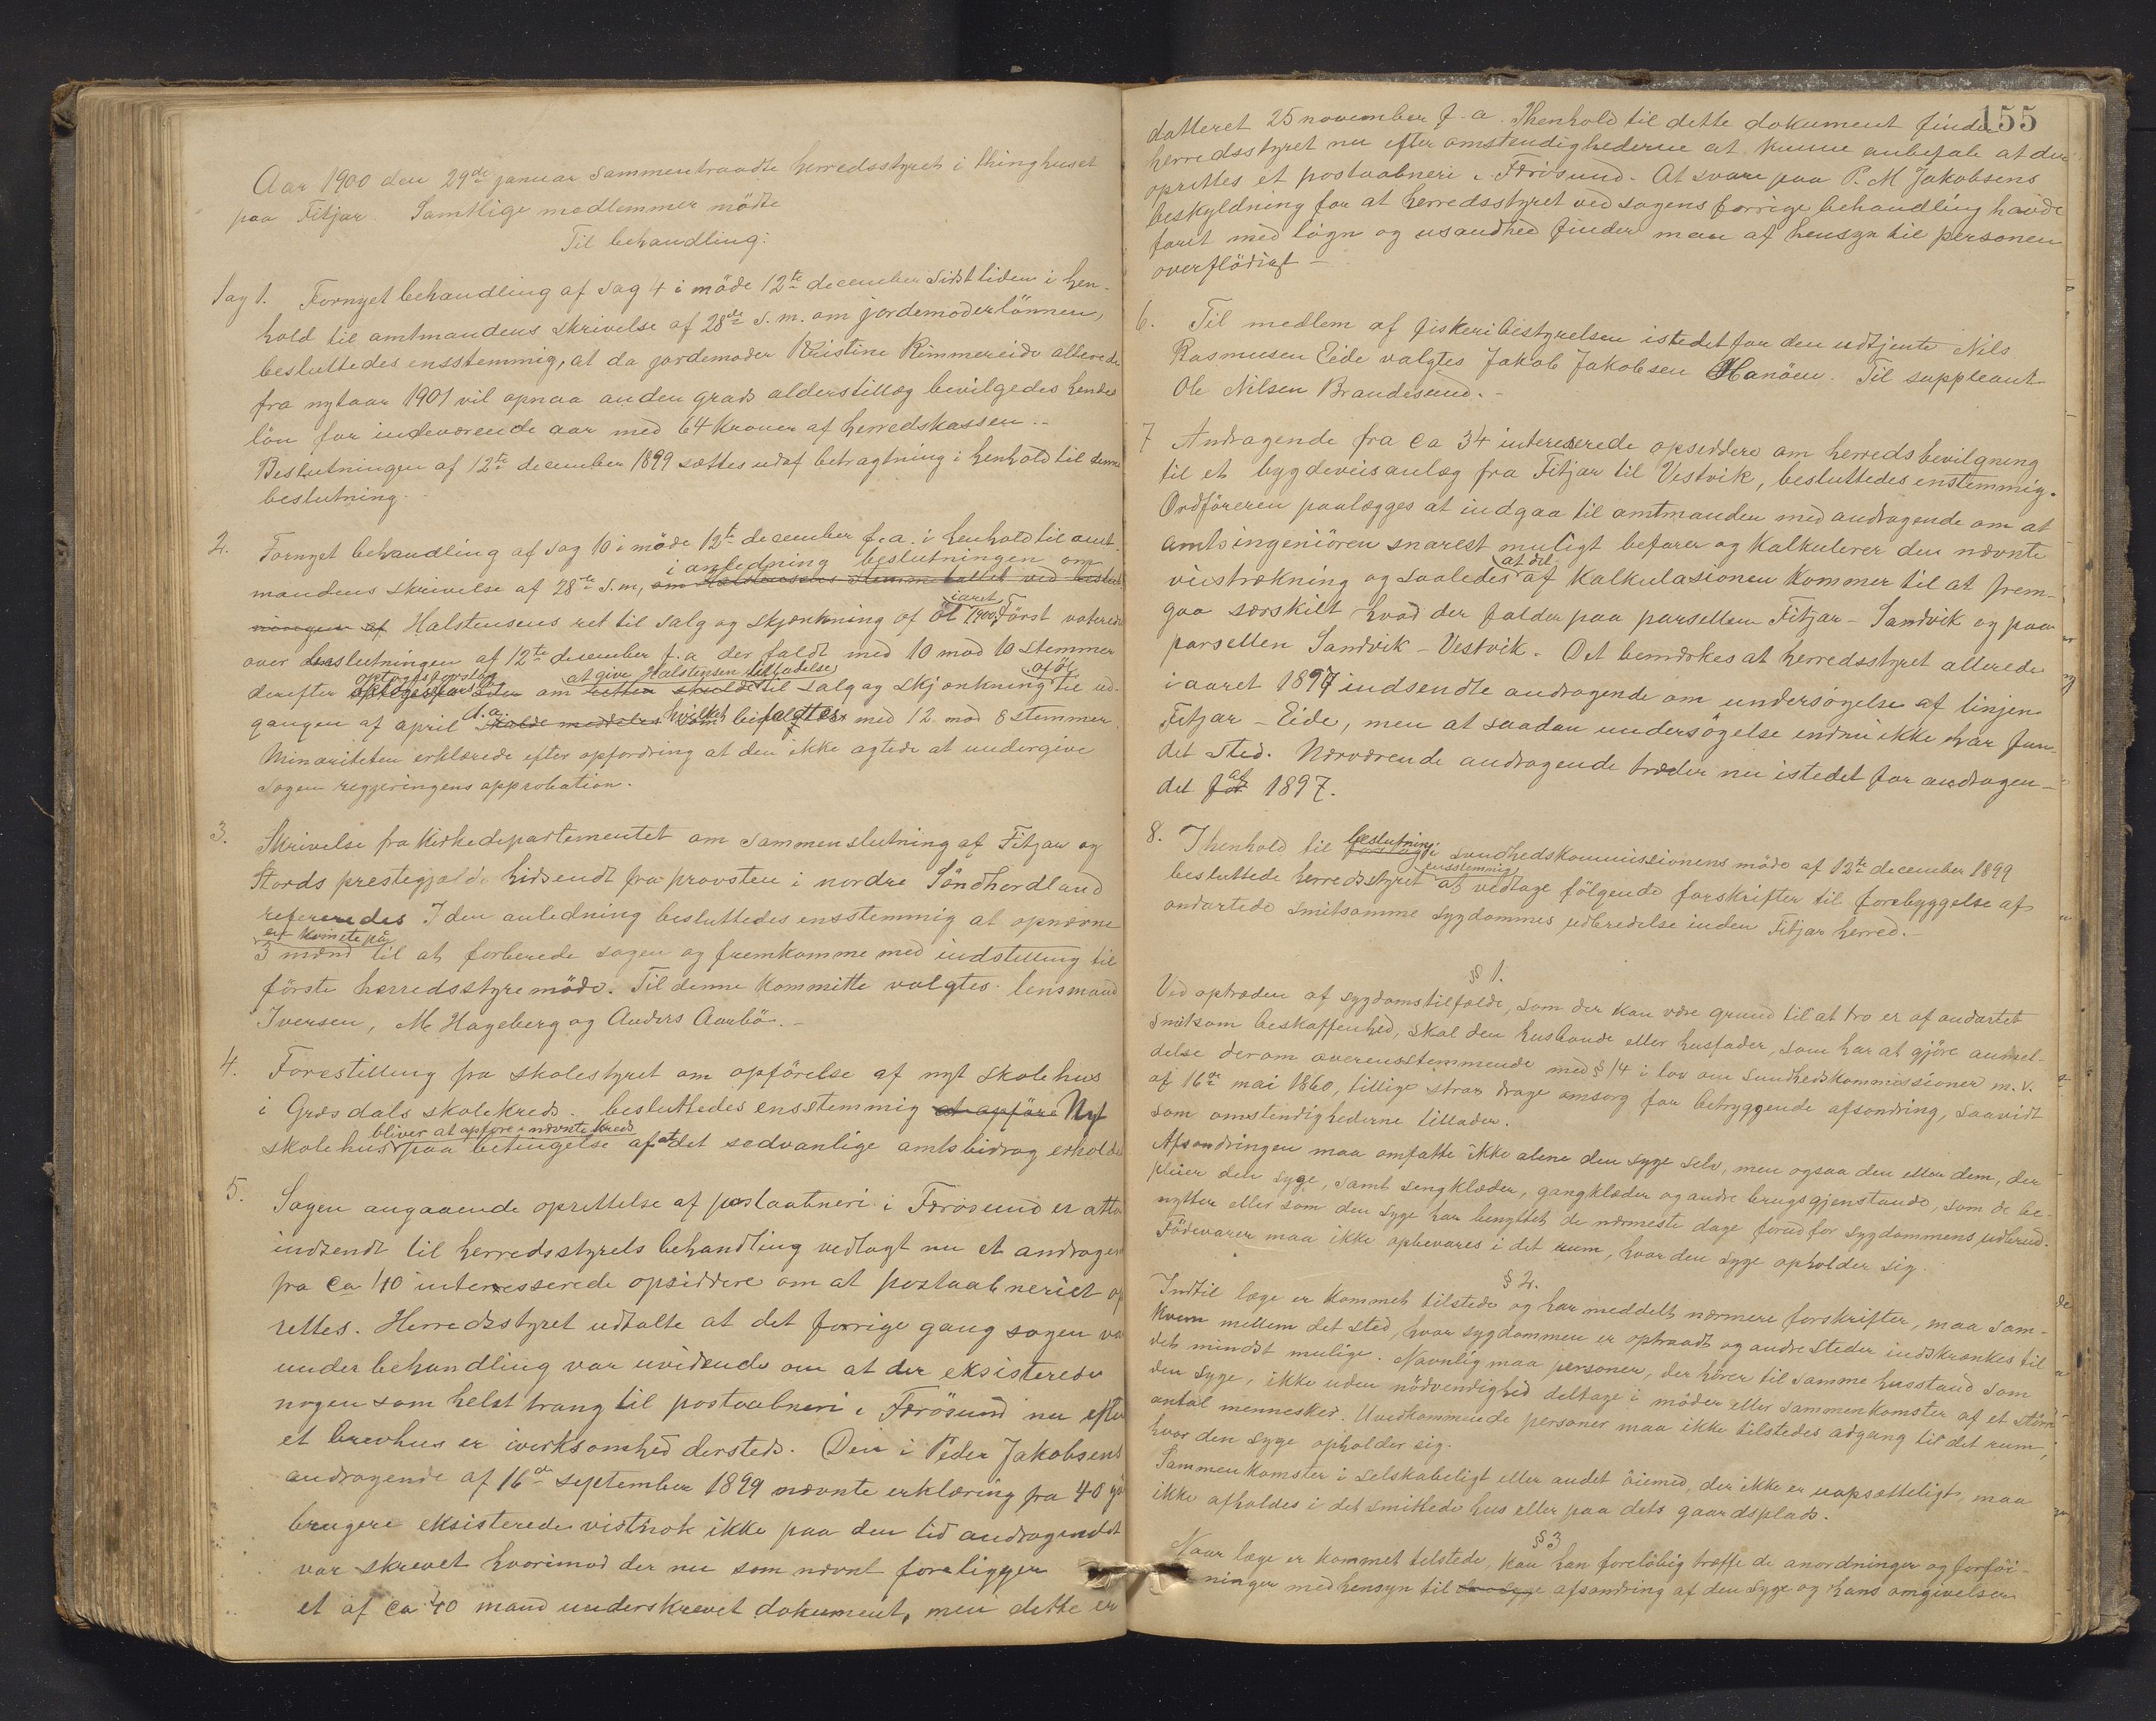 Aar 1900 den 29de januar sammentraadte herredsstyret i thinghuset
paa Fitjar. Samtlige medlemmer mödte
Til behandling:
Sag 1. Fornyet behandling af sag 4 i möde 12te december sidstliden i hen-
hold til amtmandens skrivelse af 28de s.m. om jordemoderlönnen,
besluttedes ensstemmig, at da jordemoder Kristine Rimmereide allerede
fra nytaar 1901 vil opnaa anden grads alderstillæg bevilgedes hendes
lön for indeværende aar med 64 kroner af herredskassen. -
Beslutningen af 12te december 1899 sættes udaf betragtning i henhold til denne
beslutning.
2. Fornyet behandling af sag 10 i möde 12te december f.a. i henhold til amt-
i anledning beslutningen om
mandens skrivelse af 28de s.m, om Halstensens
ningen af Halstensens ret til salg og skjænkning af öl iaaret 1900, Först voteredes
over beslutningen af 12te december f.a. der faldt med 10 mod 10 stemmer
optoges forslag at give Halstensen tilladelse af öl
derefter om retten til salg og skjænkning til ud-
gangen af april d.a. skulde meddeles hvilket bifaldtes med 12 mod 8 stemmer.
Minoriteten erklærede efter opfordring at den ikke agtede at undergive
sagen regjeringens approbation.
3. Skrivelse fra kirkedepartementet om sammenslutning af Fitjar og
Stords prestegjæld hidsendt fra provsten i nordre Söndhordland
refereredes I den anledning besluttedes ensstemmig at opnævne
en komite på
3 mænd til at forberede sagen og fremkomme med indstilling til
förste herredsstyremöde. Til denne kommitte valgtes. lensmand
Iversen, M Hageberg og Anders Aarbö. -
4. Forestilling fra skolestyret om opförelse af nyt skolehus
i Græsdals skolekreds. besluttedes ensstemmig at opföre Nyt
bliver at opföre i nævnte kreds
skolehus paa betingelse af at det sedvanlige amtsbidrag erholdes
5. Sagen angaaende oprettelse af postaabneri i Færösund er atter
indsendt til herredsstyrels behandling vedlagt nu et andragen
fra ca 40 interesserede opsiddere om at postaabneriet op
rettes. Herredsstyret udtalte at det forrige gang sagen var
under behandling var uvidende om at der eksisterede
nogen som helst trang til postaabneri i Færösund nu efter
et brevhus er ivirksomhed dersteds. Den i Peder Jakobsens
andragende af 16de september 1899 nævnte erklæring fra 40 gå
brugere eksisterede vistnok ikke paa den tid andragendet
var skrevet hvorimod der nu som nævnt foreligger
et af ca 40 mand underskrevet dokument, men dette er
155
datteret 25 november f.a. Ihenhold til dette dokument finder
herredsstyret nu efter omstendighederne at kunne anbefale at der
oprettes et postaabneri i Færösund. At svare paa P. M Jakobsens
beskyldning for at herredsstyret ved sagens forrige behandling havde
faret med lögn og usandhed finder man af hensyn til personen
overflödigt -
6. Til medlem af fiskeribestyrelsen istedet for den udtjente Nils
Rasmusen Eide valgtes Jakob Jakobsen Hanöen. Til suppleant
Ole Nilsen Brandesund. -
7 Andragende fra ca 34 interesserede opsiddere om herredsbevilgning
til et bygdeveisanlæg fra Fitjar til Vestvik, besluttedes enstemmig.
Ordföreren paalægges at indgaa til amtmanden med andragende om at
amtsingeniören snarest muligt befarer og kalkulerer den nævnte
veistrækning og saaledes at det af kalkulasionen kommer til at frem-
gaa særskilt hvad der falder paa parsellen Fitjar - Sandvik og paa
parsellen Sandvik - Vestvik. Det bemærkes at herredsstyret allerede
i aaret 1897 indsendte andragende om undersögelse af linjen
Fitjar - Eide, men at saadan undersögelse endnu ikke har fun-
det sted. Nærværende andragende træder nu istedet for andragen-
det af 1897.
8. I henhold til beslutning i sundhedskommissionens möde af 12te december 1899
besluttede herredsstyret ensstemmig at vedtage fölgende forskrifter til forebyggelse af
ondartede smitsomme sygdommes udbredelse inden Fitjar herred. -
§ 1.
Ved optræden af sygdomstilfælde, som der kan være grund til at tro er af ondartet
smitsom beskaffenhed, skal den husbonde eller husfader, som har at gjöre anmel-
delse derom overensstemmende med § 14 i lov om sundhedskommissioner m.v.
af 16de mai 1860, tillige strax drage omsorg for betryggende afsondring, saavidt
som omstendighederne tillader.
Afsondringen maa omfatte ikke alene den syge selv, men ogsaa den eller dem, der
pleier den syge, samt sengklæder, gangklæder og andre brugsgjenstande, som de be-
nytter eller som den syge har benyttet de nærmeste dage forud for sygdommens udbrud.
Födevarer maa ikke opbevares i det rum, hvor den syge opholder sig.
§ 2.
Indtil læge er kommet tilstede og har meddelt nærmere forskrifter, maa sam-
kvem mellem det sted, hvor sygdommen er optraadt og andre steder indskrænkes til
det mindst mulige. Navnlig maa personer, der hörer til samme husstand som
den syge, ikke uden nödvendighed deltage i möder eller sammenkomster af et större
antal mennesker. Uvedkommende personer maa ikke tilstedes adgang til det rum,
hvor den syge opholder sig.
Sammenkomster i selskabeligt eller andet öiemed, der ikke er uopsætteligt, maa
ikke afholdes i det smittede hus eller paa dets gaardsplads.
§ 3
Naar læge er kommet tilstede, kan han forelöbig træffe de anordninger og forföi-
ninger med hensyn til den syge afsondring af den syge og hans omgivelser